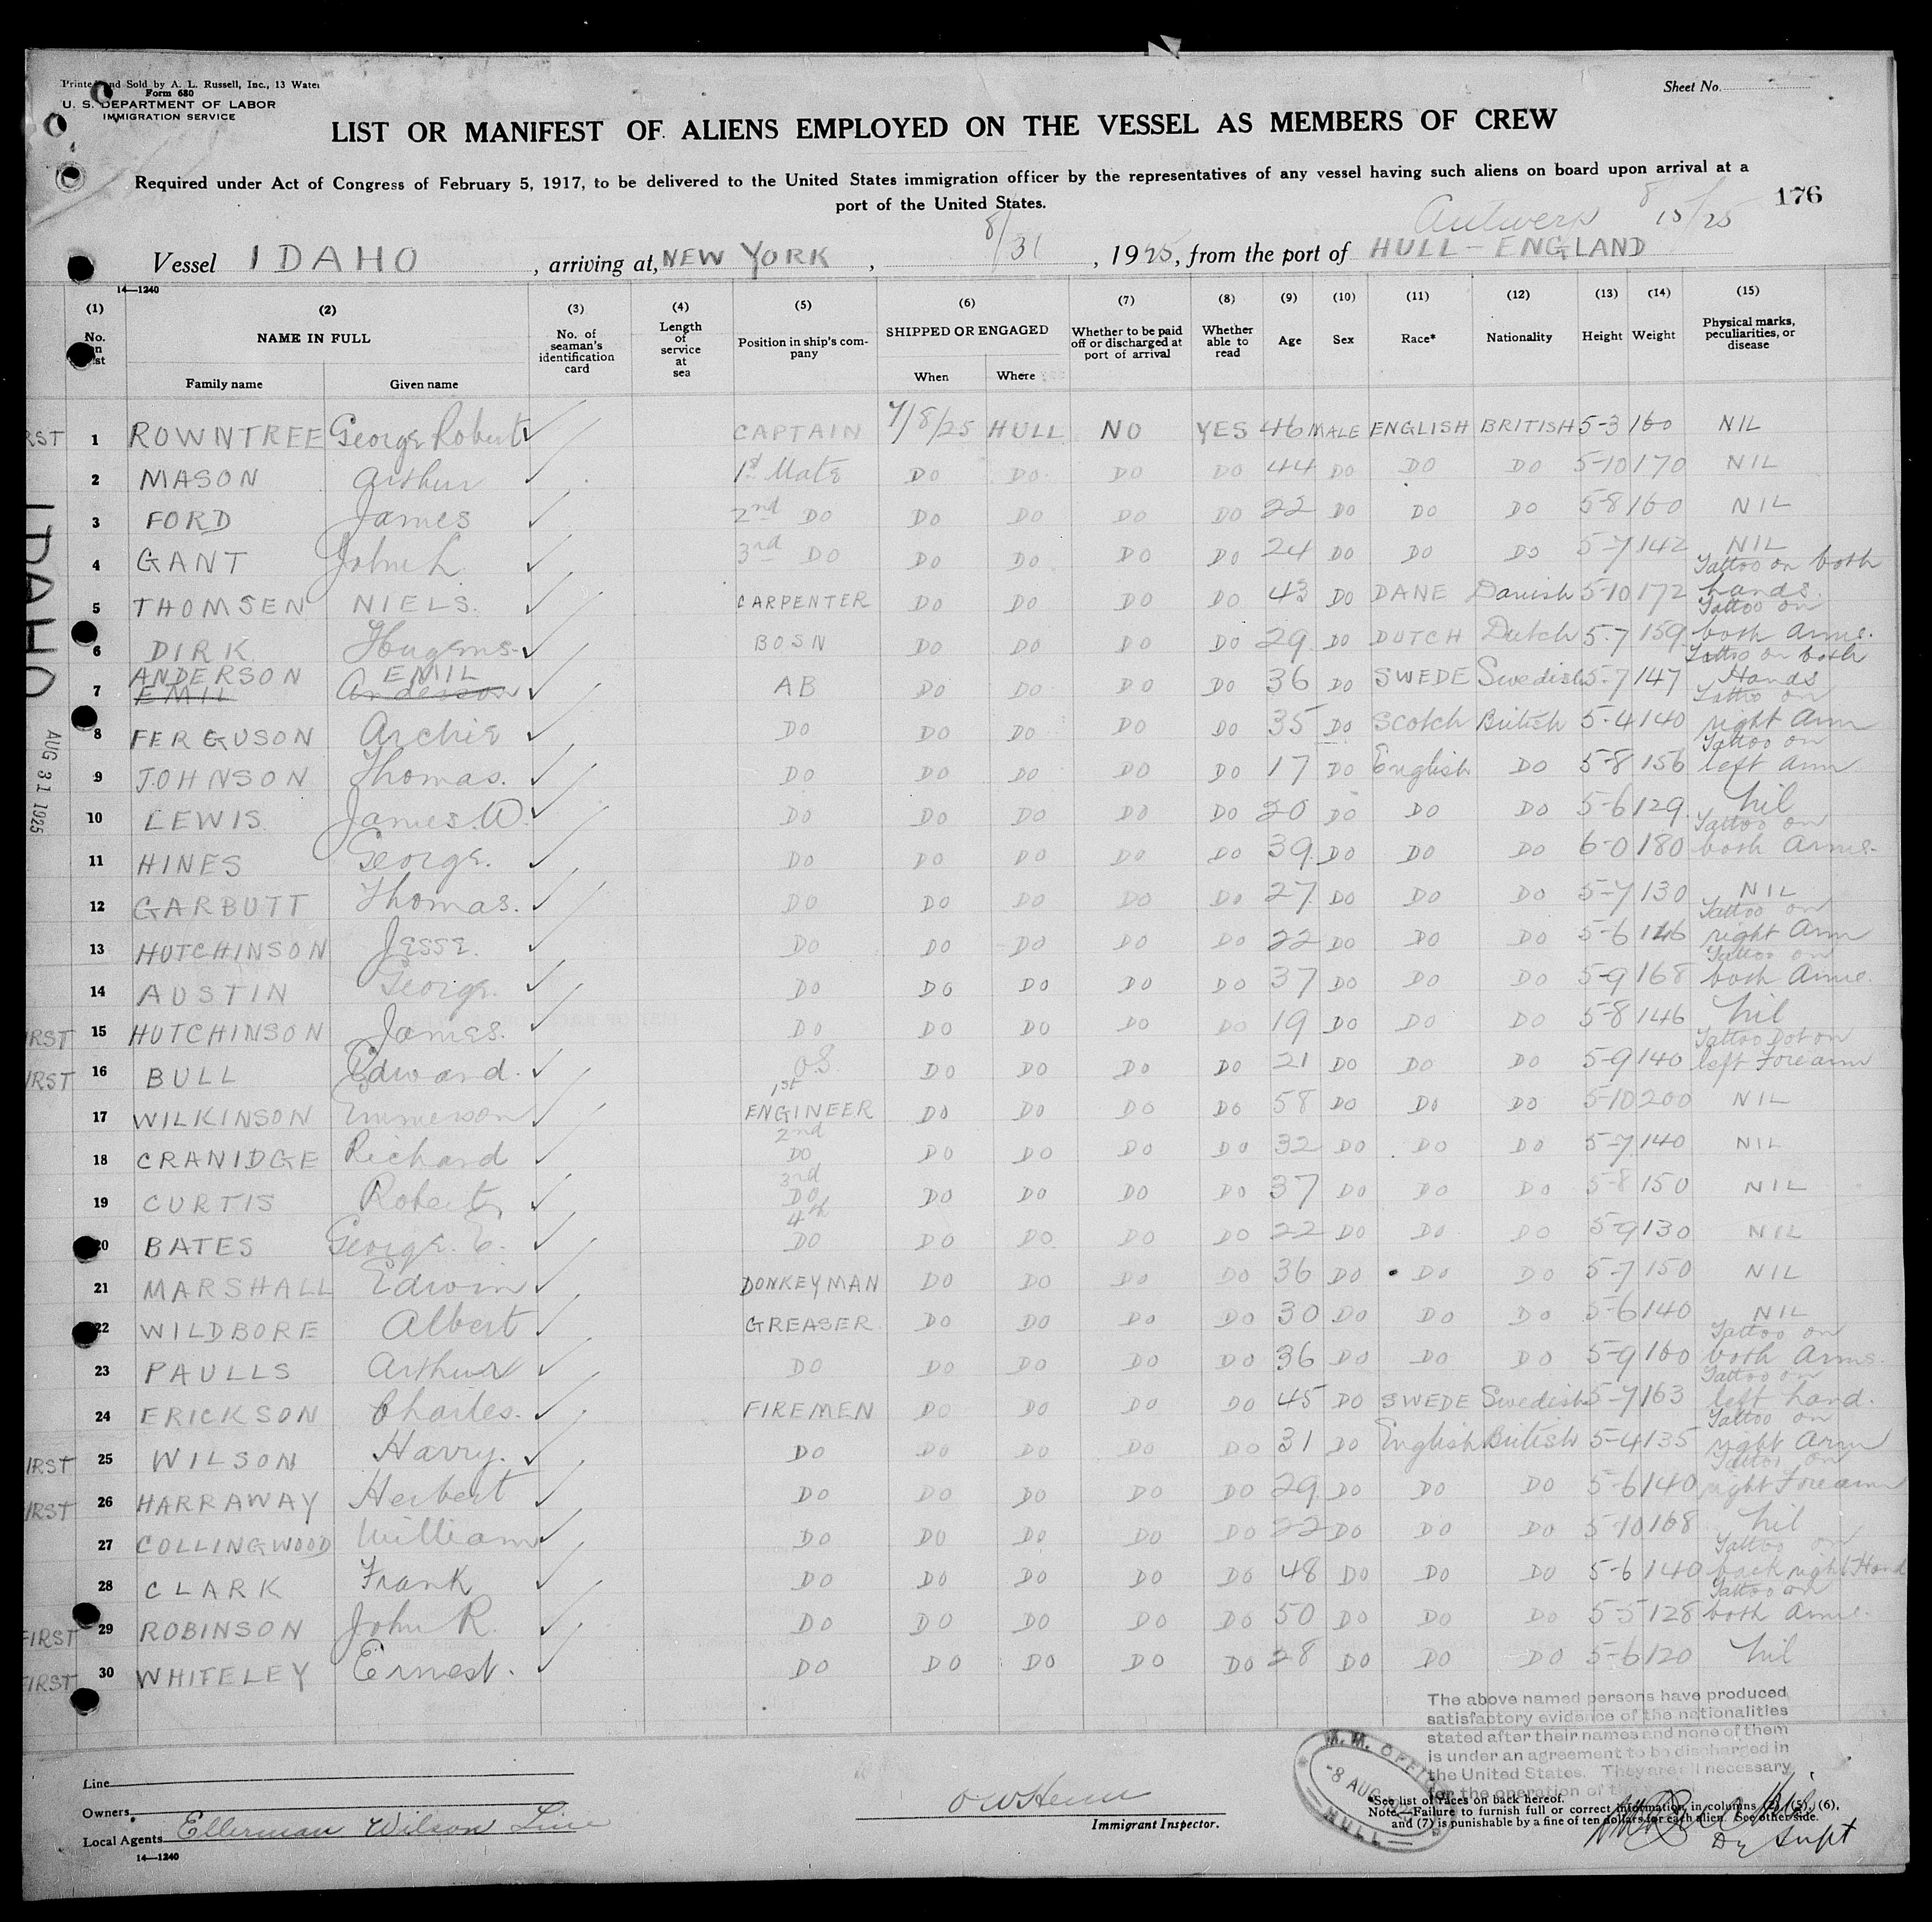 Printed and Sold by A. L. Russell, Inc., 13 Water
Form 680
U. S. DEPARTMENT OF LABOR
IMMIGRATION SERVICE
Sheet No.
LIST OR MANIFEST OF ALIENS EMPLOYED ON THE VESSEL AS MEMBERS OF CREW
Required under Act of Congress of February 5, 1917, to be delivered to the United States immigration officer by the representatives of any vessel having such aliens on board upon arrival at a
port of the United States.
176
Antwerp 8/15/25
Vessel IDAHO, arriving at, NEW YORK, 8/31, 1925, from the port of HULL - ENGLAND
14—1240
(1) (2) (3) (4) (5) (6) (7) (8) (9) (10) (11) (12) (13) (14) (15)
No. on list NAME IN FULL Family name Given name No. of seaman's identification card Length of service at sea Position in ship's company SHIPPED OR ENGAGED When Where Whether to be paid off or discharged at port of arrival Whether able to read Age Sex Race* Nationality Height Weight Physical marks, peculiarities, or disease
RST 1 ROWNTREE George Robert ✓ CAPTAIN 7/8/25 HULL NO YES 46 MALE ENGLISH BRITISH 5-3 160 NIL
2 MASON Arthur ✓ 1st Mate DO DO DO DO 44 DO DO DO 5-10 170 NIL
3 FORD James ✓ 2nd DO DO DO DO DO 22 DO DO DO 5-8 160 NIL
4 GANT John L. ✓ 3rd DO DO DO DO DO 24 DO DO DO 5-7 142 NIL
5 THOMSEN NIELS. ✓ CARPENTER DO DO DO DO 43 DO DANE Danish 5-10 172 Tattoo on both hands.
6 DIRK ✓ BOSN DO DO DO DO 29 DO DUTCH Dutch 5-7 159 Tattoo on both Arms.
7 ANDERSON EMIL EMIL Anderson ✓ AB DO DO DO DO 36 DO SWEDE Swedish 5-7 147 Tattoo on both Hands
8 FERGUSON Archie ✓ DO DO DO DO DO 35 DO Scotch British 5-4 140 Tattoo on right Arm
9 JOHNSON Thomas. ✓ DO DO DO DO DO 17 DO English DO 5-8 156 Tattoo on left Arm
10 LEWIS James. W. ✓ DO DO DO DO DO 20 DO DO DO 5-6 129 Nil
11 HINES George. ✓ DO DO DO DO DO 39 DO DO DO 6-0 180 Tattoo on both Arms.
12 GARBUTT Thomas. ✓ DO DO DO DO DO 27 DO DO DO 5-7 130 NIL
13 HUTCHINSON JESSE. ✓ DO DO DO DO DO 22 DO DO DO 5-6 146 Tattoo on right Arm
14 AUSTIN George. ✓ DO DO DO DO DO 37 DO DO DO 5-9 168 Tattoo on both Arms.
IRST 15 HUTCHINSON James. ✓ DO DO DO DO DO 19 DO DO DO 5-8 146 Nil
IRST 16 BULL Edward. ✓ OS DO DO DO DO 21 DO DO DO 5-9 140 Tattoo Dot on left Forearm
17 WILKINSON Emmerson ✓ 1st ENGINEER DO DO DO DO 58 DO DO DO 5-10 200 NIL
18 CRANIDGE Richard ✓ 2nd DO DO DO DO DO 32 DO DO DO 5-7 140 NIL
19 CURTIS Robert ✓ 3rd DO DO DO DO DO 37 DO DO DO 5-8 150 NIL
20 BATES George. E. ✓ 4th DO DO DO DO DO 22 DO DO DO 5-9 130 NIL
21 MARSHALL Edwin ✓ DONKEYMAN DO DO DO DO 36 DO DO DO 5-7 150 NIL
22 WILDBORE Albert ✓ GREASER DO DO DO DO 30 DO DO DO 5-6 140 NIL
23 PAULLS Arthur ✓ DO DO DO DO DO 36 DO DO DO 5-9 160 Tattoo on both Arms.
24 ERICKSON Charles. ✓ FIREMEN DO DO DO DO 45 DO SWEDE Swedish 5-7 163 Tattoo on left hand.
IRST 25 WILSON Harry. ✓ DO DO DO DO DO 31 DO English British 5-4 135 Tattoo on right Arm
IRST 26 HARRAWAY Herbert ✓ DO DO DO DO DO 29 DO DO DO 5-6 140 Tattoo on right Forearm
27 COLLINGWOOD William ✓ DO DO DO DO DO 22 DO DO DO 5-10 168 Nil
28 CLARK Frank ✓ DO DO DO DO DO 48 DO DO DO 5-6 140 Tattoo on back right Hand
FIRST 29 ROBINSON John R. ✓ DO DO DO DO DO 50 DO DO DO 5-5 128 Tattoo on both Arms.
FIRST 30 WHITELEY Ernest. ✓ DO DO DO DO DO 28 DO DO DO 5-6 120 Nil
IDAHO
AUG 31 1925
The above named persons have produced
satisfactory evidence of the nationalities
stated after their names and none of them
is under an agreement to be discharged in
the United States. They are all necessary
for the operation of the
M. M. OFFICE
8 AUG
HULL
Line
Owners
Local Agents Ellerman Wilson Line
14—1240
Immigrant Inspector.
*See list of races on back hereof.
Note.—Failure to furnish full or correct information in columns (2), (5), (6),
and (7) is punishable by a fine of ten dollars for each alien. See other side.
Dy Supt